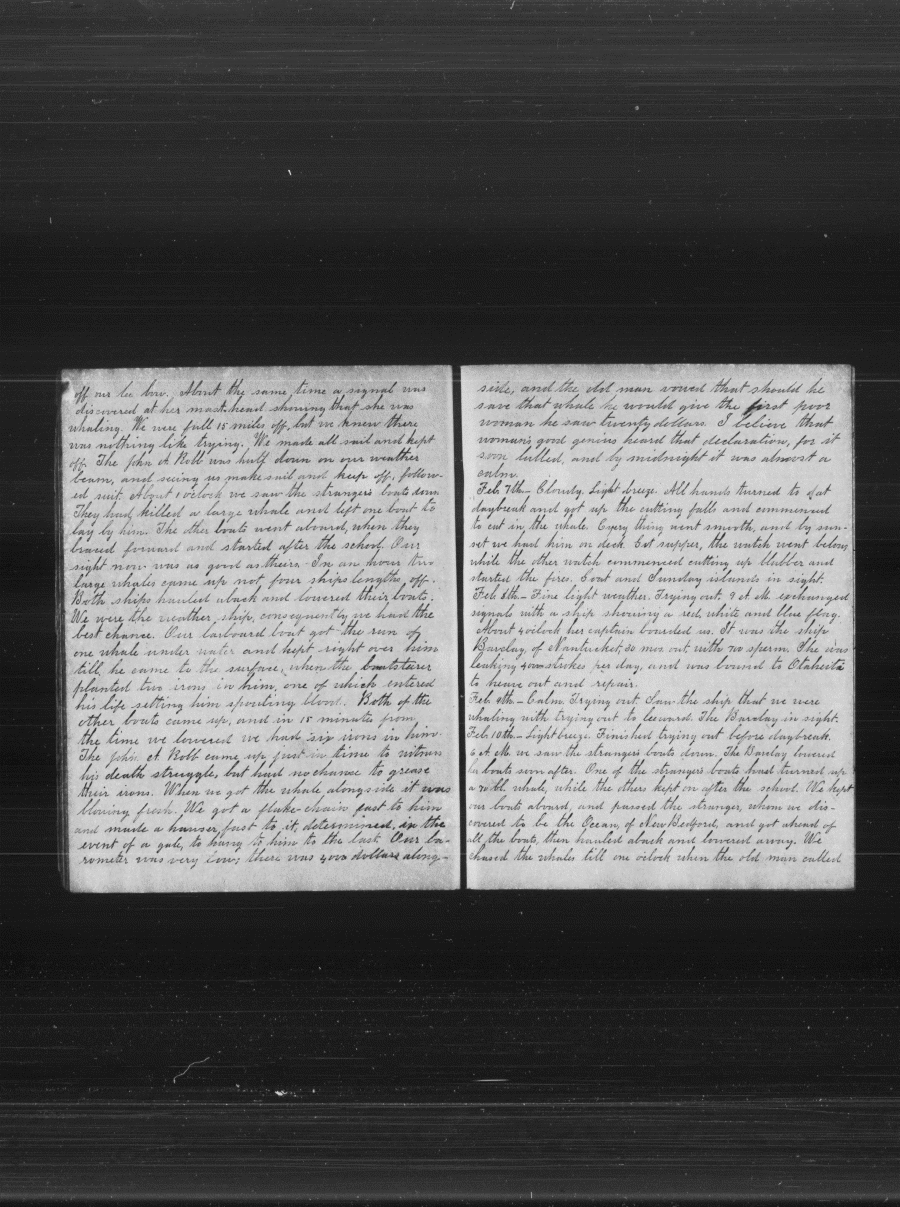 off our lee bow. About the same time a signal was
discovered at her mast-head showing that she was
whaling. We were full 15 miles off, but we knew there
was nothing like trying. We made all sail and kept
off. The John A Robb was hull down on our weather
beam, and seeing us make sail and keep off, follow-
ed suit. About 1 o'clock we saw the stranger's boats down
They had killed a large whale and left one boat to
lay by him. The other boats went aboard, when they
braced forward and started after the school. Our
sight now was as good as theirs. In an hour two
large whales came up not four ships lengths, off.
Both ships hauled aback and lowered their boats.
We were the weather ship, consequently we had the
best chance. Our larboard boat got the run of
one whale under water and kept right over him
till he came to the surface, when the boatsterer
planted two irons in him, one of which entered
his life setting him spouting blood. Both of the
other boats came up, and in 15 minutes from
the time we lowered we had six irons in him.
The John A Robb came up just in time to witness
his death struggle, but had no chance to grease
their irons. When we got the whale alongside it was
blowing fresh. We got a fluke-chain fast to him
and made a hawser fast to it, determined, in the
event of a gale, to hang to him to the last. Our ba-
rometer was very low; there was 4000 dollars along-
side, and the old man vowed that should he
save that whale he would give the first poor
woman he saw twenty dollars. I believe that
woman's good genius heard that declaration, for it
soon lulled, and by midnight it was almost a
calm.
Feb. 7th.— Cloudy. Light breeze. All hands turned to at
daybreak and got up the cutting falls and commenced
to cut in the whale. Every thing went smooth, and by sun-
set we had him on deck. Eat supper, the watch went below,
while the other watch commenced cutting up blubber and
started the fires. Coat and Sunday islands in sight.
Feb. 8th.— Fine light weather. Trying out. 9 A.M. exchanged
signals with a ship showing a red, white and blue flag.
About 4 o'clock her captain boarded us. It was the ship
Barclay, of Nantucket, 30 mos out with 700 sperm. She was
leaking 4000 strokes per day, and was bound to Otaheita
to heave out and repair.
Feb. 9th.— Calm. Trying out. Saw the ship that we were
whaling with trying out to leeward. The Barclay in sight.
Feb. 10th.— Light breeze. Finished trying out before daybreak.
6 A.M. we saw the strangers boats down. The Barclay lowered
her boats soon after. One of the strangers boats had turned up
a 70 bbl. whale, while the others kept on after the school. We kept
our boats aboard, and passed the stranger, whom we dis-
covered to be the Ocean, of New Bedford, and got ahead of
all the boats, then hauled aback and lowered away. We
chased the whales till one o'clock when the old man called